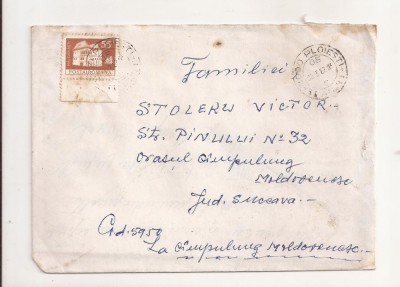 55
POSTA ROMANA
PLOIESTI
Familiei
STOLERU VICTOR.
Str. PINULUI Nº 32
Orasul Cimpulung
Moldovenesc
Jud. Suceava.
Cod. 5950
La Cimpulung Moldovenesc.